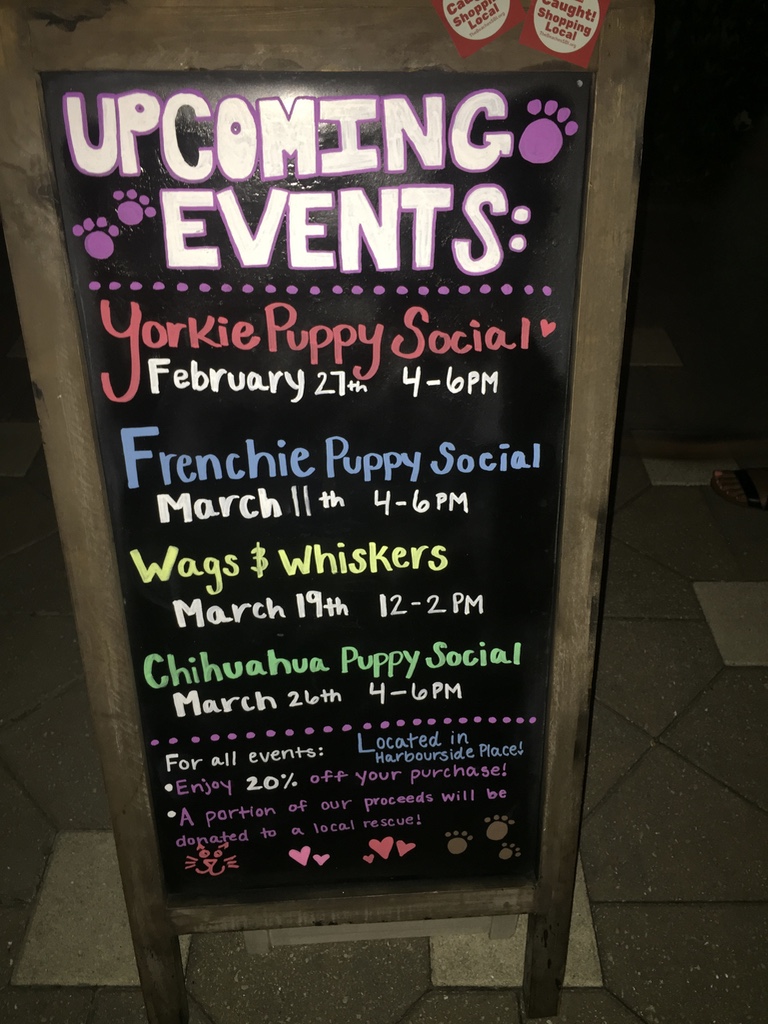 Caught!
Shopping
Local
Caught!
Shopping
Local
UPCOMING
EVENTS:
Yorkie Puppy Social
February 27th 4-6PM
Frenchie Puppy Social
March 11th 4-6PM
Wags & Whiskers
March 19th 12-2PM
Chihuahua Puppy Social
March 26th 4-6PM
For all events: Located in
Harbourside Place!
•Enjoy 20% off your purchase!
•A portion of our proceeds will be
donated to a local rescue!